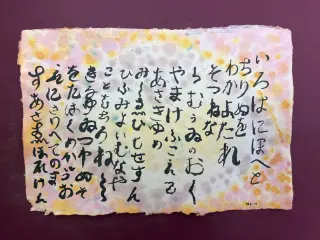 いろはにほへと
ちりぬるを
わかよたれ
そつねな
らむうゐのおく
やまけふこえて
あさきゆめ
みしゑひもせすん
ひふみよいむなや
こともちろらねし
きるゆゐつわぬそ
をたはくめかうお
えにさりへてのま
すあせゑほれけん